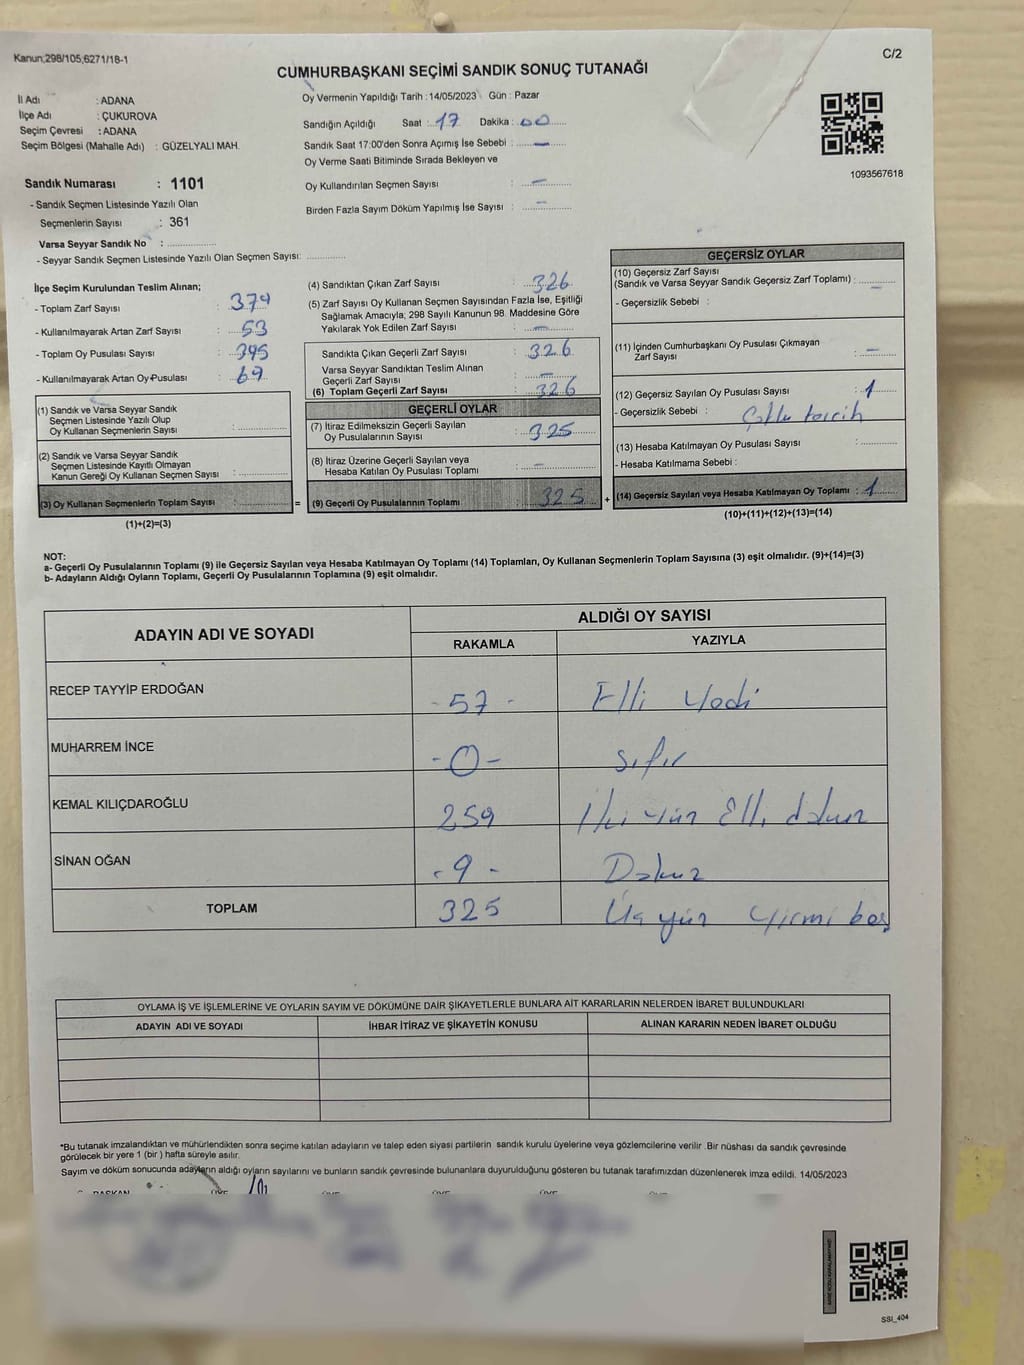 Kanun;298/105,6271/18-1
C/2
CUMHURBAŞKANI SEÇİMİ SANDIK SONUÇ TUTANAĞI
İl Adı : ADANA
İlçe Adı : ÇUKUROVA
Seçim Çevresi : ADANA
Seçim Bölgesi (Mahalle Adı) : GÜZELYALI MAH.
Sandık Numarası : 1101
- Sandık Seçmen Listesinde Yazılı Olan
Seçmenlerin Sayısı : 361
Varsa Seyyar Sandık No :
- Seyyar Sandık Seçmen Listesinde Yazılı Olan Seçmen Sayısı:
Oy Vermenin Yapıldığı Tarih : 14/05/2023 Gün : Pazar
Sandığın Açıldığı Saat : 17 Dakika : 00
Sandık Saat 17:00'den Sonra Açımış İse Sebebi : -
Oy Verme Saati Bitiminde Sırada Bekleyen ve
Oy Kullandırılan Seçmen Sayısı : -
Birden Fazla Sayım Döküm Yapılmış İse Sayısı : -
1093567618
İlçe Seçim Kurulundan Teslim Alınan;
- Toplam Zarf Sayısı : 379
- Kullanılmayarak Artan Zarf Sayısı : 53
- Toplam Oy Pusulası Sayısı : 395
- Kullanılmayarak Artan Oy Pusulası : 69
(1) Sandık ve Varsa Seyyar Sandık
Seçmen Listesinde Yazılı Olup
Oy Kullanan Seçmenlerin Sayısı :
(2) Sandık ve Varsa Seyyar Sandık
Seçmen Listesinde Kayıtlı Olmayan
Kanun Gereği Oy Kullanan Seçmen Sayısı :
(3) Oy Kullanan Seçmenlerin Toplam Sayısı :
(1)+(2)=(3)
=
(4) Sandıktan Çıkan Zarf Sayısı : 326
(5) Zarf Sayısı Oy Kullanan Seçmen Sayısından Fazla İse, Eşitliği
Sağlamak Amacıyla; 298 Sayılı Kanunun 98. Maddesine Göre
Yakılarak Yok Edilen Zarf Sayısı : -
Sandıkta Çıkan Geçerli Zarf Sayısı : 326
Varsa Seyyar Sandıktan Teslim Alınan
Geçerli Zarf Sayısı : -
(6) Toplam Geçerli Zarf Sayısı : 326
GEÇERLİ OYLAR
(7) İtiraz Edilmeksizin Geçerli Sayılan
Oy Pusulalarının Sayısı : 325
(8) İtiraz Üzerine Geçerli Sayılan veya
Hesaba Katılan Oy Pusulası Toplamı : -
(9) Geçerli Oy Pusulalarının Toplamı 325
+
GEÇERSİZ OYLAR
(10) Geçersiz Zarf Sayısı
(Sandık ve Varsa Seyyar Sandık Geçersiz Zarf Toplamı) : -
- Geçersizlik Sebebi :
(11) İçinden Cumhurbaşkanı Oy Pusulası Çıkmayan
Zarf Sayısı : -
(12) Geçersiz Sayılan Oy Pusulası Sayısı : 1
- Geçersizlik Sebebi : Çoklu tercih
(13) Hesaba Katılmayan Oy Pusulası Sayısı :
- Hesaba Katılmama Sebebi :
(14) Geçersiz Sayılan veya Hesaba Katılmayan Oy Toplamı : 1
(10)+(11)+(12)+(13)=(14)
NOT:
a- Geçerli Oy Pusulalarının Toplamı (9) ile Geçersiz Sayılan veya Hesaba Katılmayan Oy Toplamı (14) Toplamları, Oy Kullanan Seçmenlerin Toplam Sayısına (3) eşit olmalıdır. (9)+(14)=(3)
b- Adayların Aldığı Oyların Toplamı, Geçerli Oy Pusulalarının Toplamına (9) eşit olmalıdır.
ADAYIN ADI VE SOYADI
ALDIĞI OY SAYISI
RAKAMLA YAZIYLA
RECEP TAYYİP ERDOĞAN - 57 - Elli Yedi
MUHARREM İNCE - 0 - Sıfır
KEMAL KILIÇDAROĞLU 259 İki Yüz Elli dokuz
SİNAN OĞAN - 9 - Dokuz
TOPLAM 325 Üç yüz yirmi beş
OYLAMA İŞ VE İŞLEMLERİNE VE OYLARIN SAYIM VE DÖKÜMÜNE DAİR ŞİKAYETLERLE BUNLARA AİT KARARLARIN NELERDEN İBARET BULUNDUKLARI
ADAYIN ADI VE SOYADI İHBAR İTİRAZ VE ŞİKAYETİN KONUSU ALINAN KARARIN NEDEN İBARET OLDUĞU
*Bu tutanak imzalandıktan ve mühürlendikten sonra seçime katılan adayların ve talep eden siyasi partilerin sandık kurulu üyelerine veya gözlemcilerine verilir. Bir nüshası da sandık çevresinde
görülecek bir yere 1 (bir ) hafta süreyle asılır.
Sayım ve döküm sonucunda adayların aldığı oyların sayılarını ve bunların sandık çevresinde bulunanlara duyurulduğunu gösteren bu tutanak tarafımızdan düzenlenerek imza edildi. 14/05/2023
SSI_404